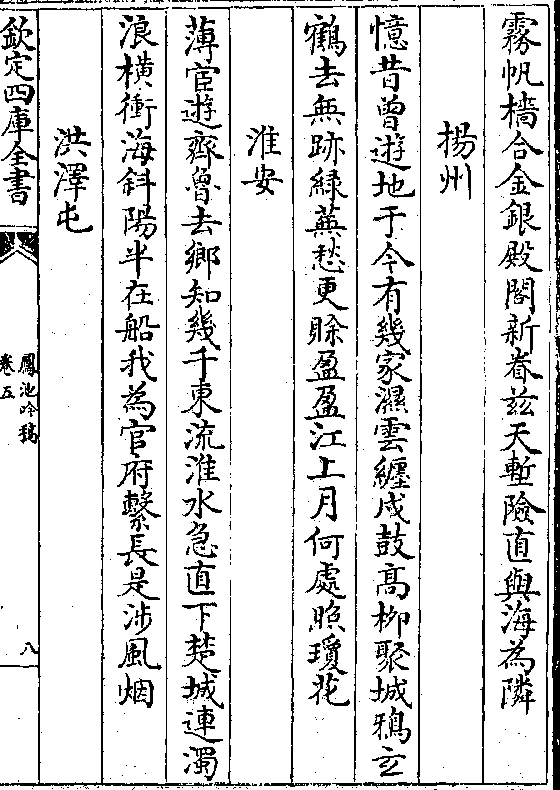 霧帆檣合金銀殿閣新眷兹天塹險直與海為隣
揚州
憶昔曾遊地于今有幾家濕雲纏戍鼓高栁聚城鴉玄
鶴去無跡緑蕪愁更賖盈盈江上月何處照瓊花
淮安
薄宦遊齊魯去鄉知幾千東流淮水急直下楚城連濁
浪橫衝海斜陽半在船我為官府繫長是涉風烟
洪澤屯
欽定四庫全書
鳳池吟稿
卷五
八